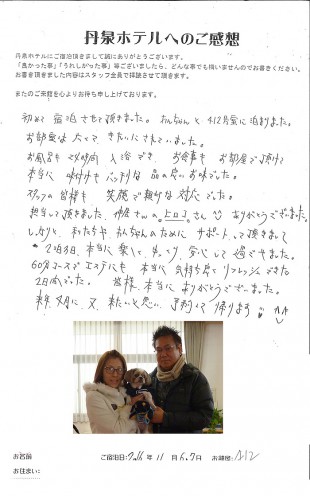 丹泉ホテルへのご感想
丹泉ホテルにご宿泊頂きまして誠にありがとうございます。
「良かった事」「うれしかった事」等ございましたら、どんな事でも構いませんのでお書きください。
お書き頂きました内容はスタッフ全員で拝読させて頂きます。
またのご来館を心よりお待ち申し上げております。
初めて宿泊させて頂きました。わんちゃんと412号室に泊まりました。
お部屋は広くて、きれいにされていました。
お風呂も24時間入浴でき、お食事もお部屋で頂けて
本当に味付けもバッチリな品の良いお味でした。
スタッフの皆様も笑顔で親切な対応でした。
担当して頂きました、さんのヒロコさん ありがとうございました。
私たちやわんちゃんのためにサポートして頂きまして
2泊3日、本当に楽しく、ゆっくり、安心して過ごせました。
60分コースでエステにも、本当に気持ち良くリフレッシュできた
2日間でした。皆様、本当にありがとうございました。
来年、又、来たいと思い、予約して帰ります
お名前 ご宿泊日: 年 11 月 6.7 日 お部屋: 412
お住まい: